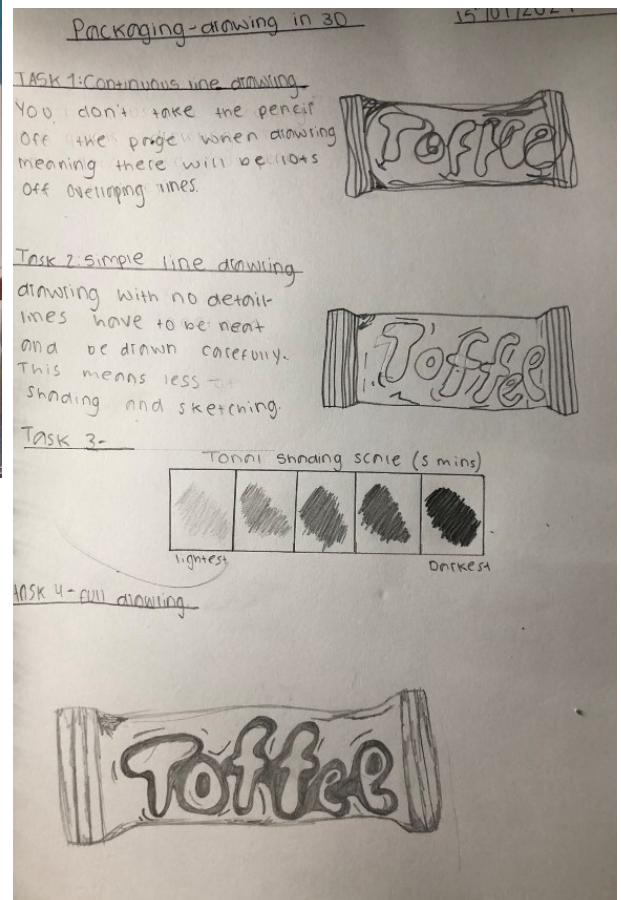 Packaging-drawing in 3D
TASK 1:Continuous line drawing
You don't take the pencil
off the page when drawing
meaning there will be lots
off overlapping lines.
Toffee
Task 2:simple line drawring
drawring with no detail-
lines have to be neat
and be drawn carefully.
This means less
shading and sketching.
Toffee
Task 3-
Tonal shading scale (5 mins)
lightest
Darkest
task 4-full drawring
Toffee